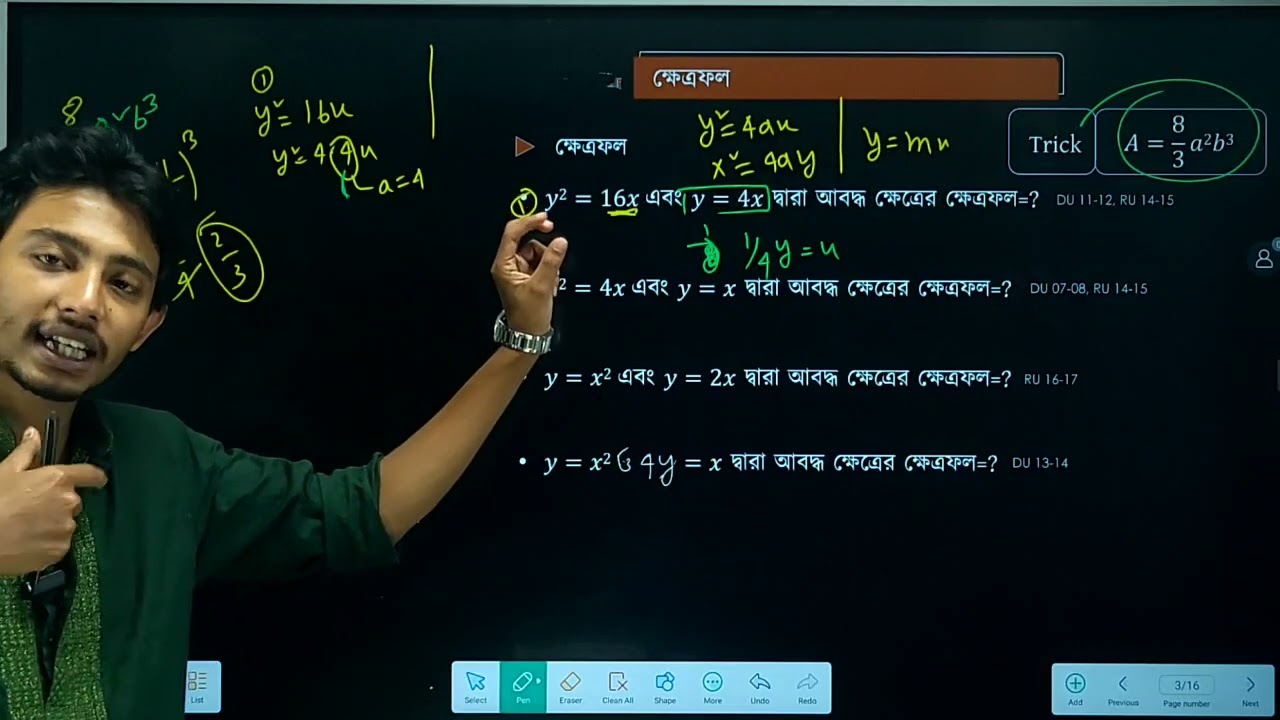 ক্ষেত্রফল
ক্ষেত্রফল
y² = 4ax
x² = 4ay
y = mx
Trick
A = 8/3 a²b³
① y² = 16x এবং y = 4x দ্বারা আবদ্ধ ক্ষেত্রের ক্ষেত্রফল=? DU 11-12, RU 14-15
1/4 y = x
² = 4x এবং y = x দ্বারা আবদ্ধ ক্ষেত্রের ক্ষেত্রফল=? DU 07-08, RU 14-15
y = x² এবং y = 2x দ্বারা আবদ্ধ ক্ষেত্রের ক্ষেত্রফল=? RU 16-17
• y = x² ও 4y = x দ্বারা আবদ্ধ ক্ষেত্রের ক্ষেত্রফল=? DU 13-14
①
y² = 16x
y² = 4(4)x
a = 4
8
b³
2/3
List
Select Pen Eraser Clean All Shape More Undo Redo
Add Previous 3/16 Page number Next